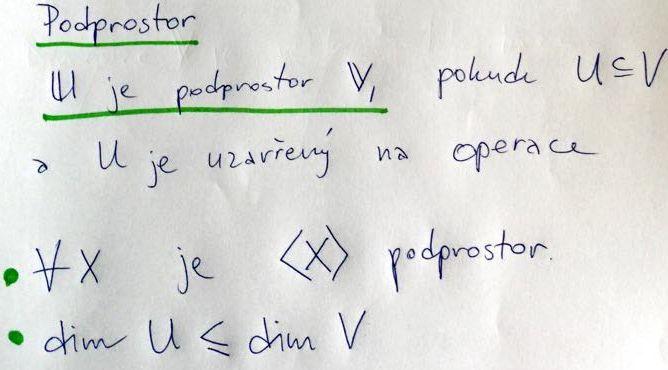 Podprostor
𝕌 je podprostor 𝕍, pokud U ⊆ V
a U je uzavřený na operace
• ∀X je ⟨X⟩ podprostor.
• dim U ≤ dim V